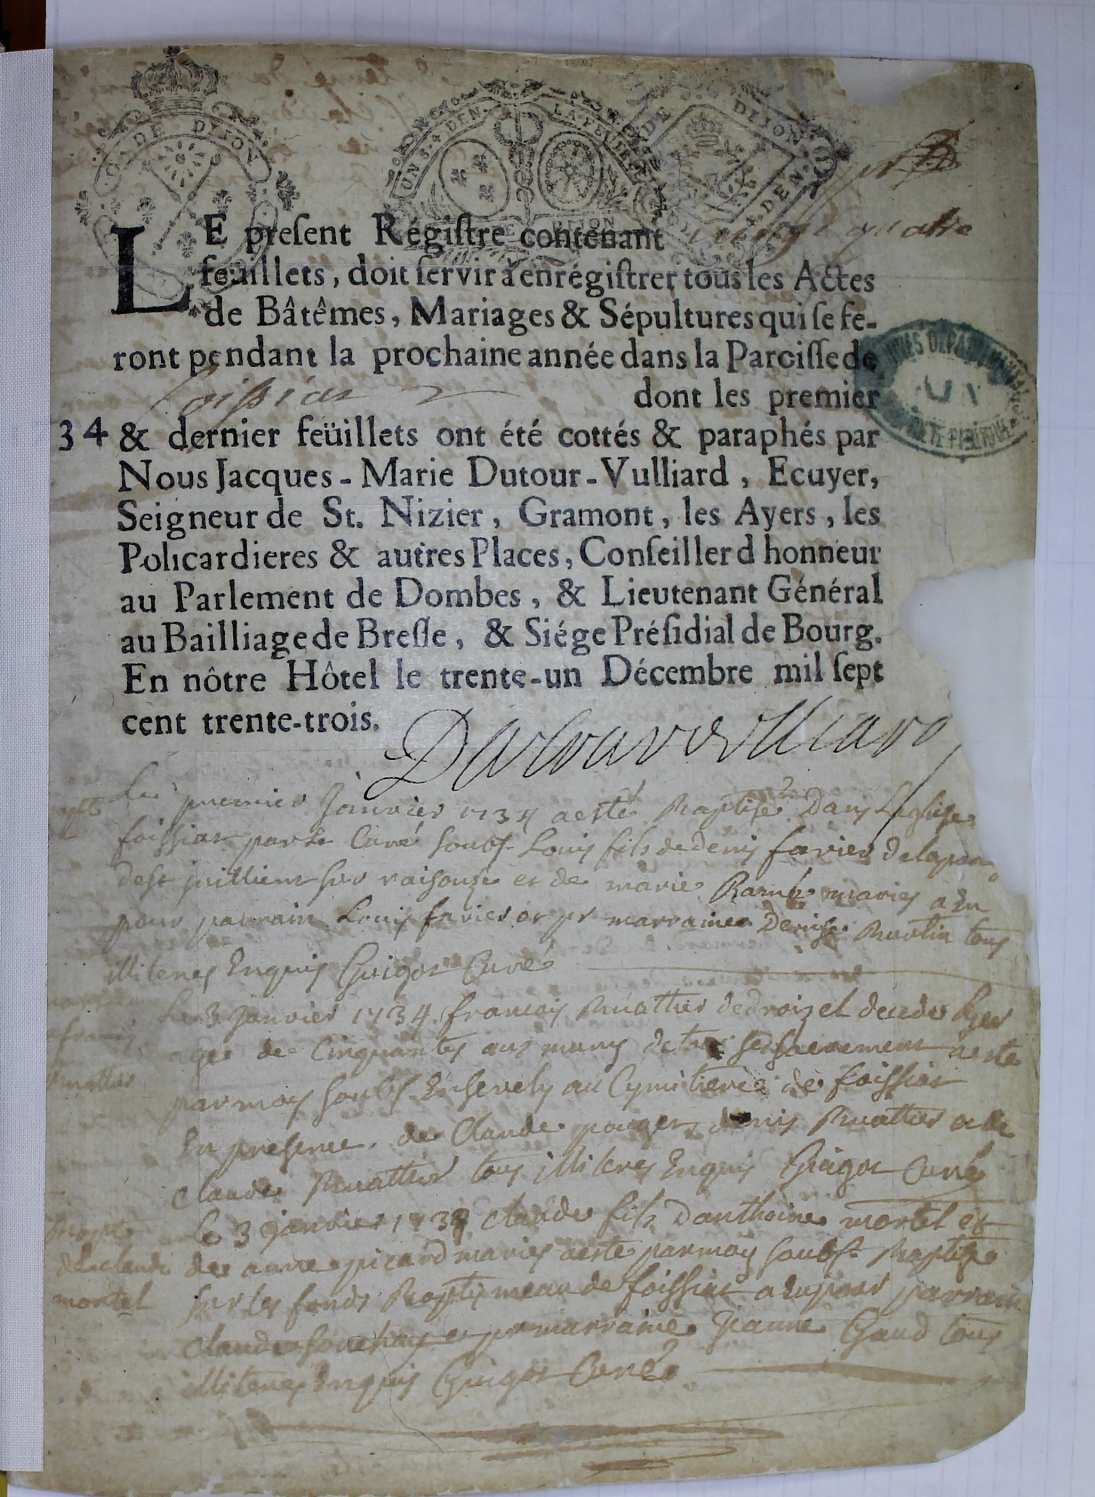 GN. DE DIJON
UN S. 4 DEN. LA FEUILLE
DE DIJON
DE DIJON 4 DEN.
vingt quatre
LE present Régistre contenant
feüillets, doit servir à enrégistrer tous les Actes
de Bâtêmes, Mariages & Sépultures qui se fe-
ront pendant la prochaine année dans la Paroisse de
foissiat dont les premier
34 & dernier feüillets ont été cottés & paraphés par
Nous Jacques-Marie Dutour-Vulliard, Ecuyer,
Seigneur de St. Nizier, Gramont, les Ayers, les
Policardieres & autres Places, Conseiller d honneur
au Parlement de Dombes, & Lieutenant Général
au Bailliage de Bresse, & Siége Présidial de Bourg.
En nôtre Hôtel le trente-un Décembre mil sept
cent trente-trois.
Dutourvulliard
Le premier Janvier 1734 a esté Baptisé Dans L'eglise
foissiat par le Curé soubs. Louis fils de denis favier
et de marie maries a eu
pour parrain Louis favier et pr marraine Denise Buatin tous
illiteres Enquis Guigot Curé
Le 3 Janvier 1734 francois Buattier decedé hyer
agé de Cinquantes ans muny de tous ses sacrement a esté
par moy soubs. Ensevely au Cymitiere de foissiat
En presence de Claude denis Buattier et de
claude Buattier tous illiteres Enquis Guigot Curé
Bapt.
de claude
mortel
Le 3 janvier 1734 claude fils D'anthoine mortel et
de anne picard maries a esté par moy soubs. Baptisé
sur les fonds Baptismeau de foissiat a eu pour parrain
claude et pr marraine Jeanne Gaud tous
illiteres Enquis Guigot Curé